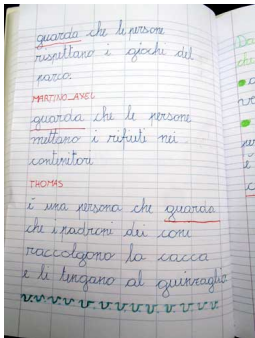 guarda che le persone
rispettano i giochi del
parco.
MARTINO_AXEL
guarda che le persone
mettano i rifiuti nei
contenitori
THOMAS
è una persona che guarda
che i padroni dei cani
raccolgono la cacca
e li tengano al guinzaglio